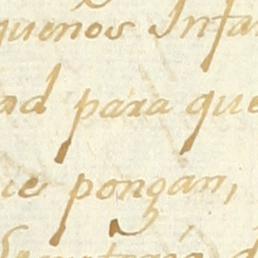 quenos Infan
ad para que
ue pongan,